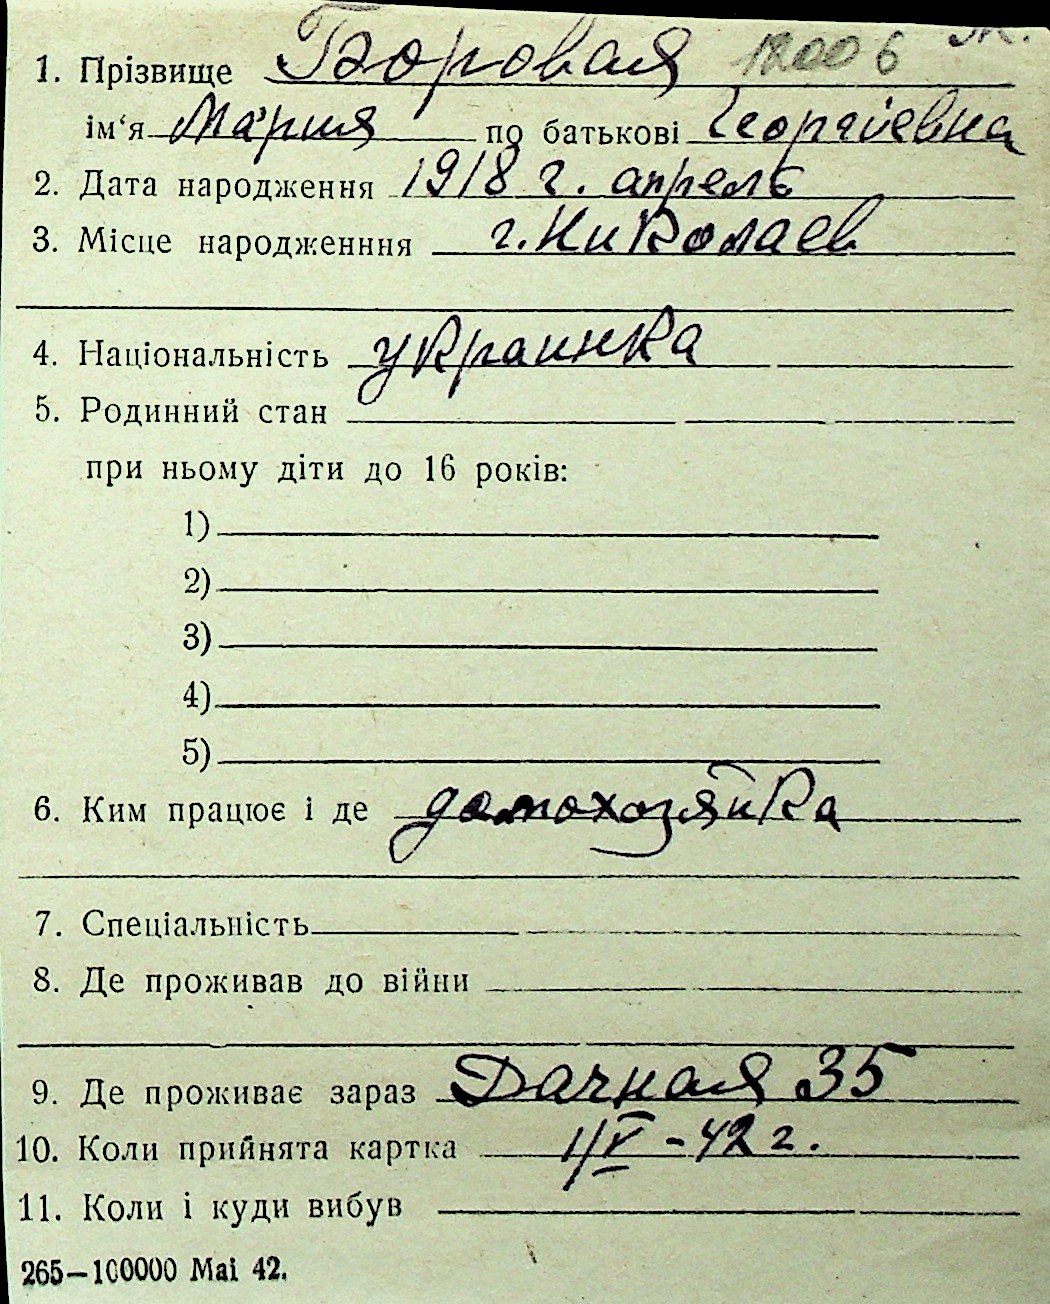 1. Прізвище Боровая 12006 Ж.
ім'я Мария по батькові Георгиевна
2. Дата народження 1918 г. апрель
3. Місце народженння г. Николаев
4. Національність украинка
5. Родинний стан
при ньому діти до 16 років:
1)
2)
3)
4)
5)
6. Ким працює і де домохозяйка
7. Спеціальність
8. Де проживав до війни
9. Де проживає зараз Дачная 35
10. Коли прийнята картка 1/V - 42 г.
11. Коли і куди вибув
265—100000 Mai 42.